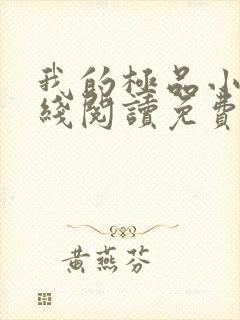 我的極品小
綫閱讀免費
黃燕芬